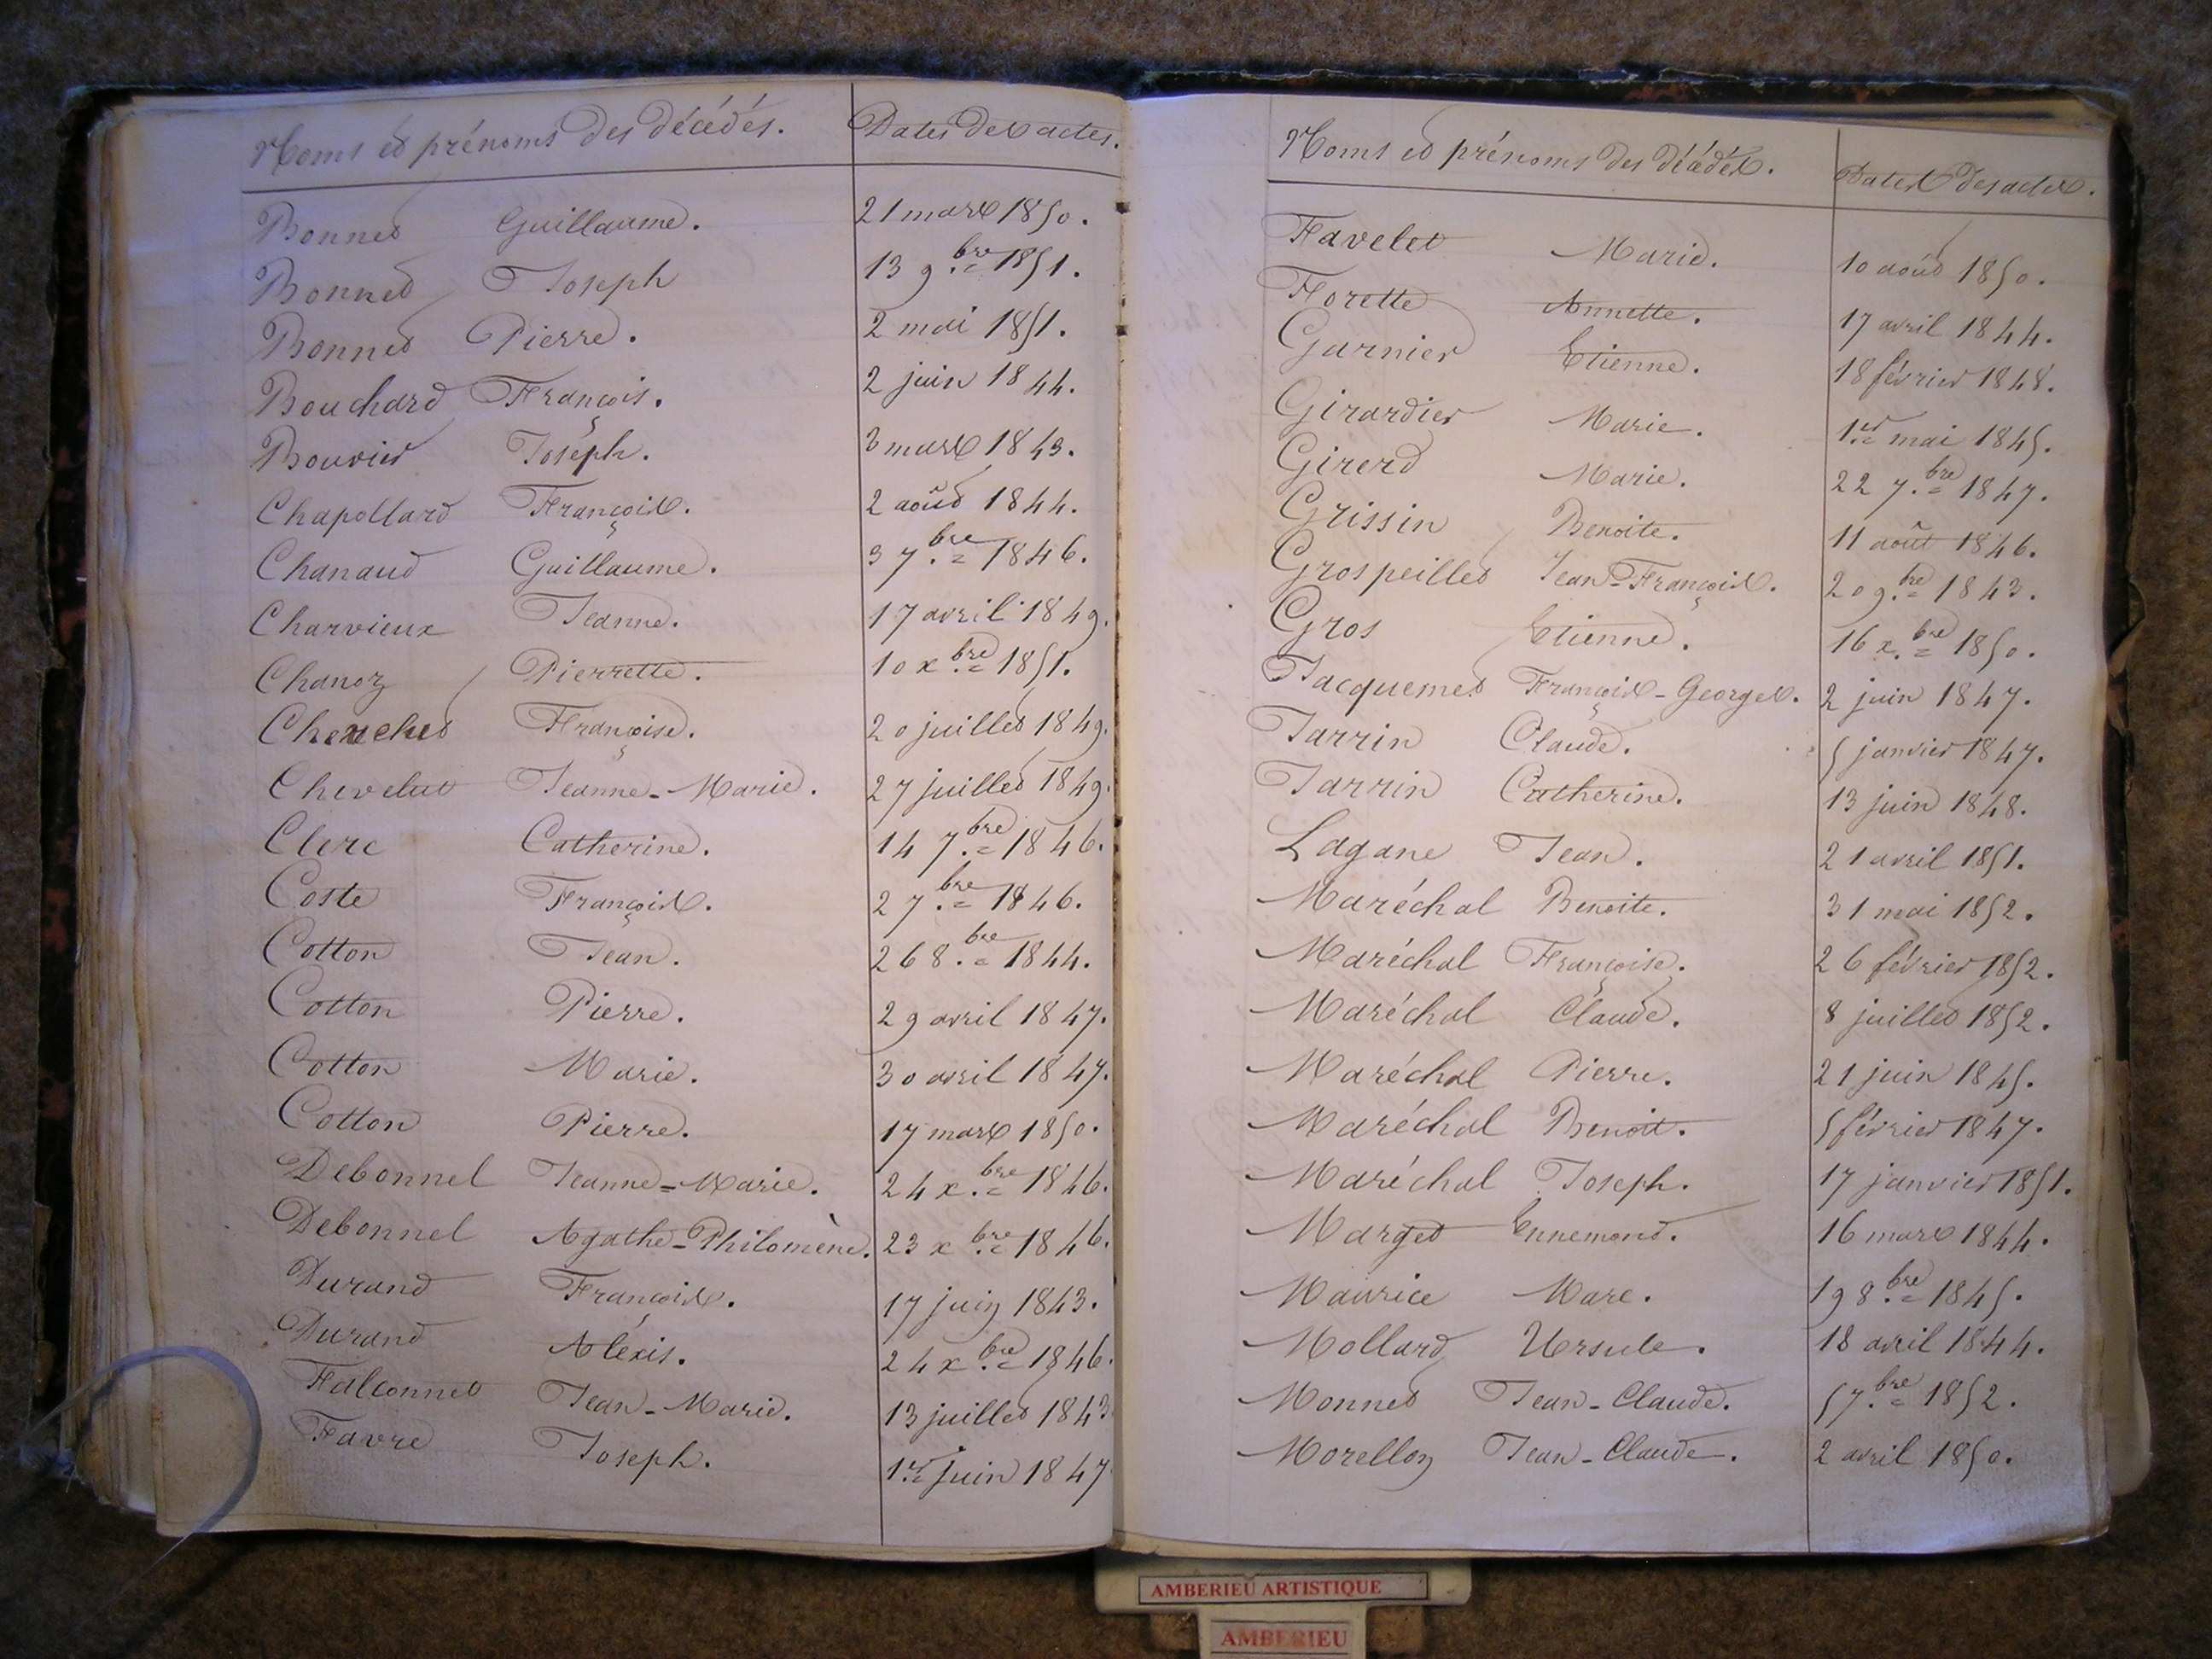 Noms et prénoms des décédés. Dates des actes.
Bonnet Guillaume. 21 mars 1850.
Bonnet Joseph 13 9.bre 1851.
Bonnet Pierre. 2 mai 1851.
Bouchard François. 2 juin 1844.
Bouvier Joseph. 3 mars 1843.
Chapollard François. 2 août 1844.
Chanaud Guillaume. 3 7.bre 1846.
Charvieux Jeanne. 17 avril 1849.
Chanoz Pierrette. 10 x.bre 1851.
Françoise. 20 juillet 1849.
Chevelut Jeanne-Marie. 27 juillet 1849.
Clerc Catherine. 14 7.bre 1846.
Coste François. 2 7.bre 1846.
Cotton Jean. 26 8.bre 1844.
Cotton Pierre. 29 avril 1847.
Cotton Marie. 30 avril 1847.
Cotton Pierre. 17 mars 1850.
Debonnel Jeanne=Marie. 24 x.bre 1846.
Debonnel Agathe-Philomène. 23 x.bre 1846.
Durand François. 17 juin 1843.
Durand Aléxis. 24 x.bre 1846.
Falconnet Jean-Marie. 13 juillet 1843
Favre Joseph. 1er juin 1847
Noms et prénoms des décédés. Dates des actes.
Favelet Marie. 10 août 1850.
Florette Annette. 17 avril 1844.
Garnier Etienne. 18 février 1848.
Girardier Marie. 1er mai 1845.
Girerd Marie. 22 7.bre 1847.
Grissin Benoite. 11 août 1846.
Grospeillet Jean-François. 20 9.bre 1843.
Gros Etienne. 16 x.bre 1850.
Jacquemet François-Georges. 2 juin 1847.
Jarrin Claude. 5 janvier 1847.
Jarrin Catherine. 13 juin 1848.
Lagane Jean. 21 avril 1851.
Maréchal Benoite. 31 mai 1852.
Maréchal Françoise. 26 février 1852.
Maréchal Claude. 8 juillet 1852.
Maréchal Pierre. 21 juin 1845.
Maréchal Benoit. 5 février 1847.
Maréchal Joseph. 17 janvier 1851.
Marget Ennemond. 16 mars 1844.
Maurice Marc. 19 8.bre 1845.
Mollard Ursule. 18 avril 1844.
Monnet Jean-Claude. 5 7.bre 1852.
Morellon Jean-Claude. 2 avril 1850.
AMBERIEU ARTISTIQUE
AMBERIEU